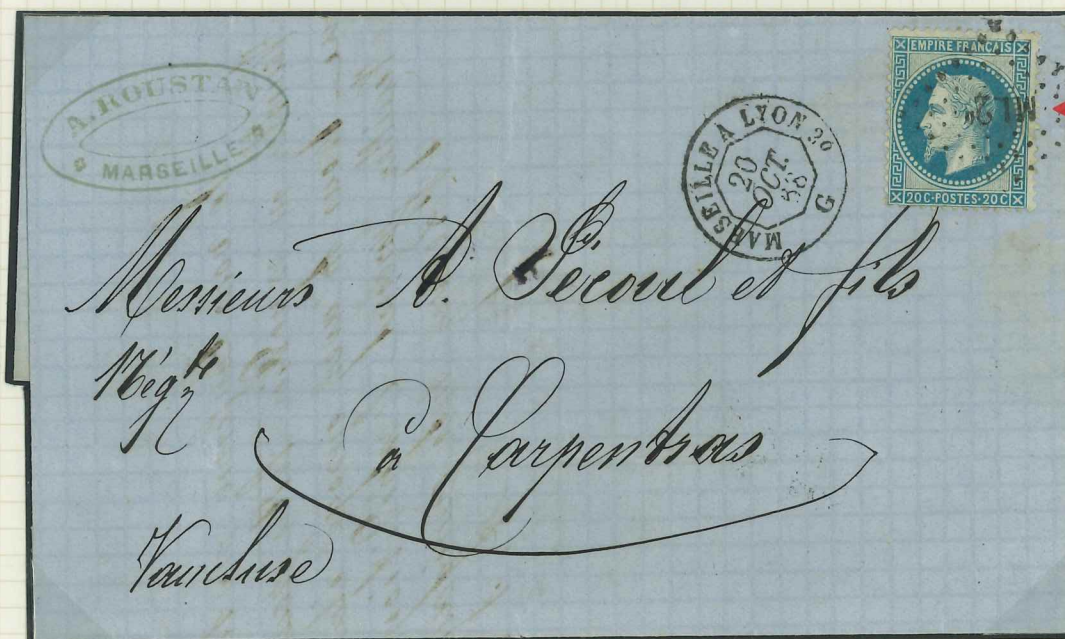 A. ROUSTAN
MARSEILLE
MARSEILLE A LYON 2°
20
OCT.
68
G
EMPIRE FRANÇAIS
20 C·POSTES·20 C
ML2°
Messieurs A. Pécoul et fils
Négts
à Carpentras
Vaucluse